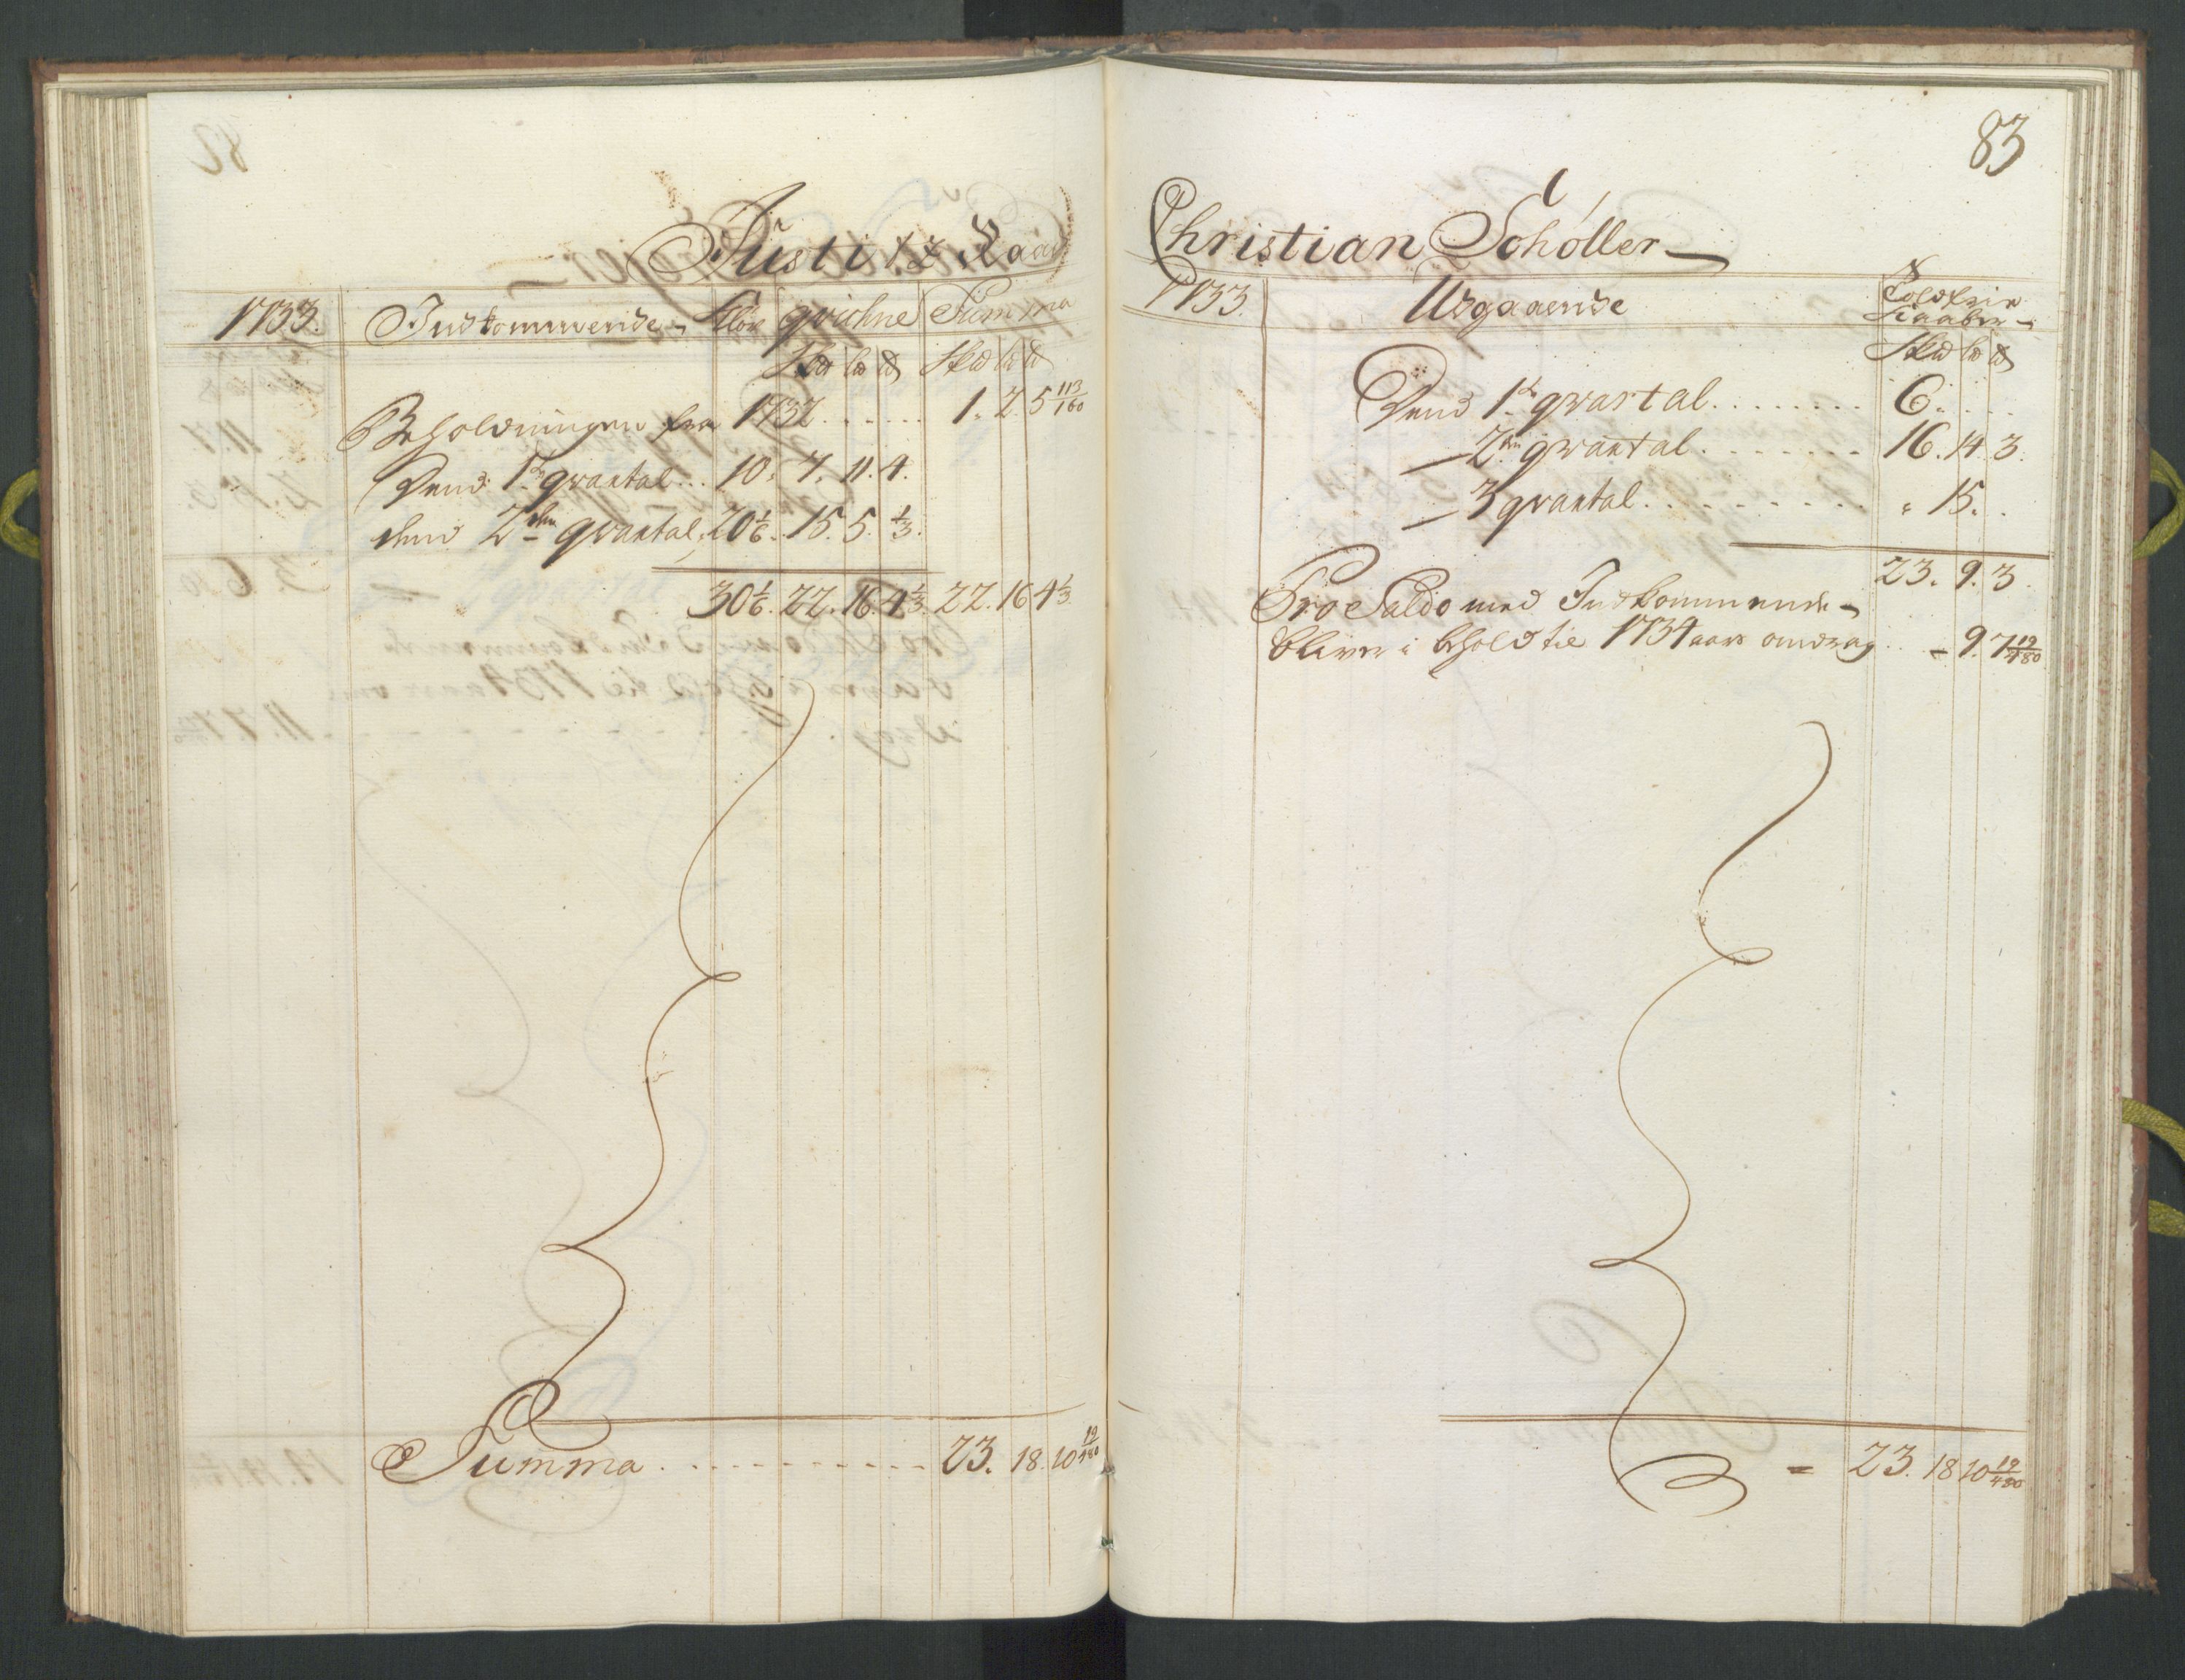 Justitz Raad
1733. Indkommende Klöv gvichne Summa
Skd ld d Skd ld d
Beholdningen fra 1732 . . . . . . 1. 2. 5 113/160
Vend 1ste qvartal . . 10. 7. 11. 4.
dend 2den qvartal. 20 1/6. 15. 5. 1/3.
30 1/6. 22. 16. 4 1/3. 22. 16 4 1/3
Summa . . . . . . . . . . . 23. 18. 10 19/480
83
Christian Schóller
1733. Udgaaende
Skd ld d
Vend 1ste qvartal . . . . . . . . 6. . . .
— 2den qvartal . . . . . . . 16. 14. 3.
— 3 qvartal . . . . . . . . . " 15. .
23. 9. 3.
Pro Saldo med Indkommende
bliver i behold til 1734 aars andrag . . - 9. 7 19/480
= 23. 18 10 19/480